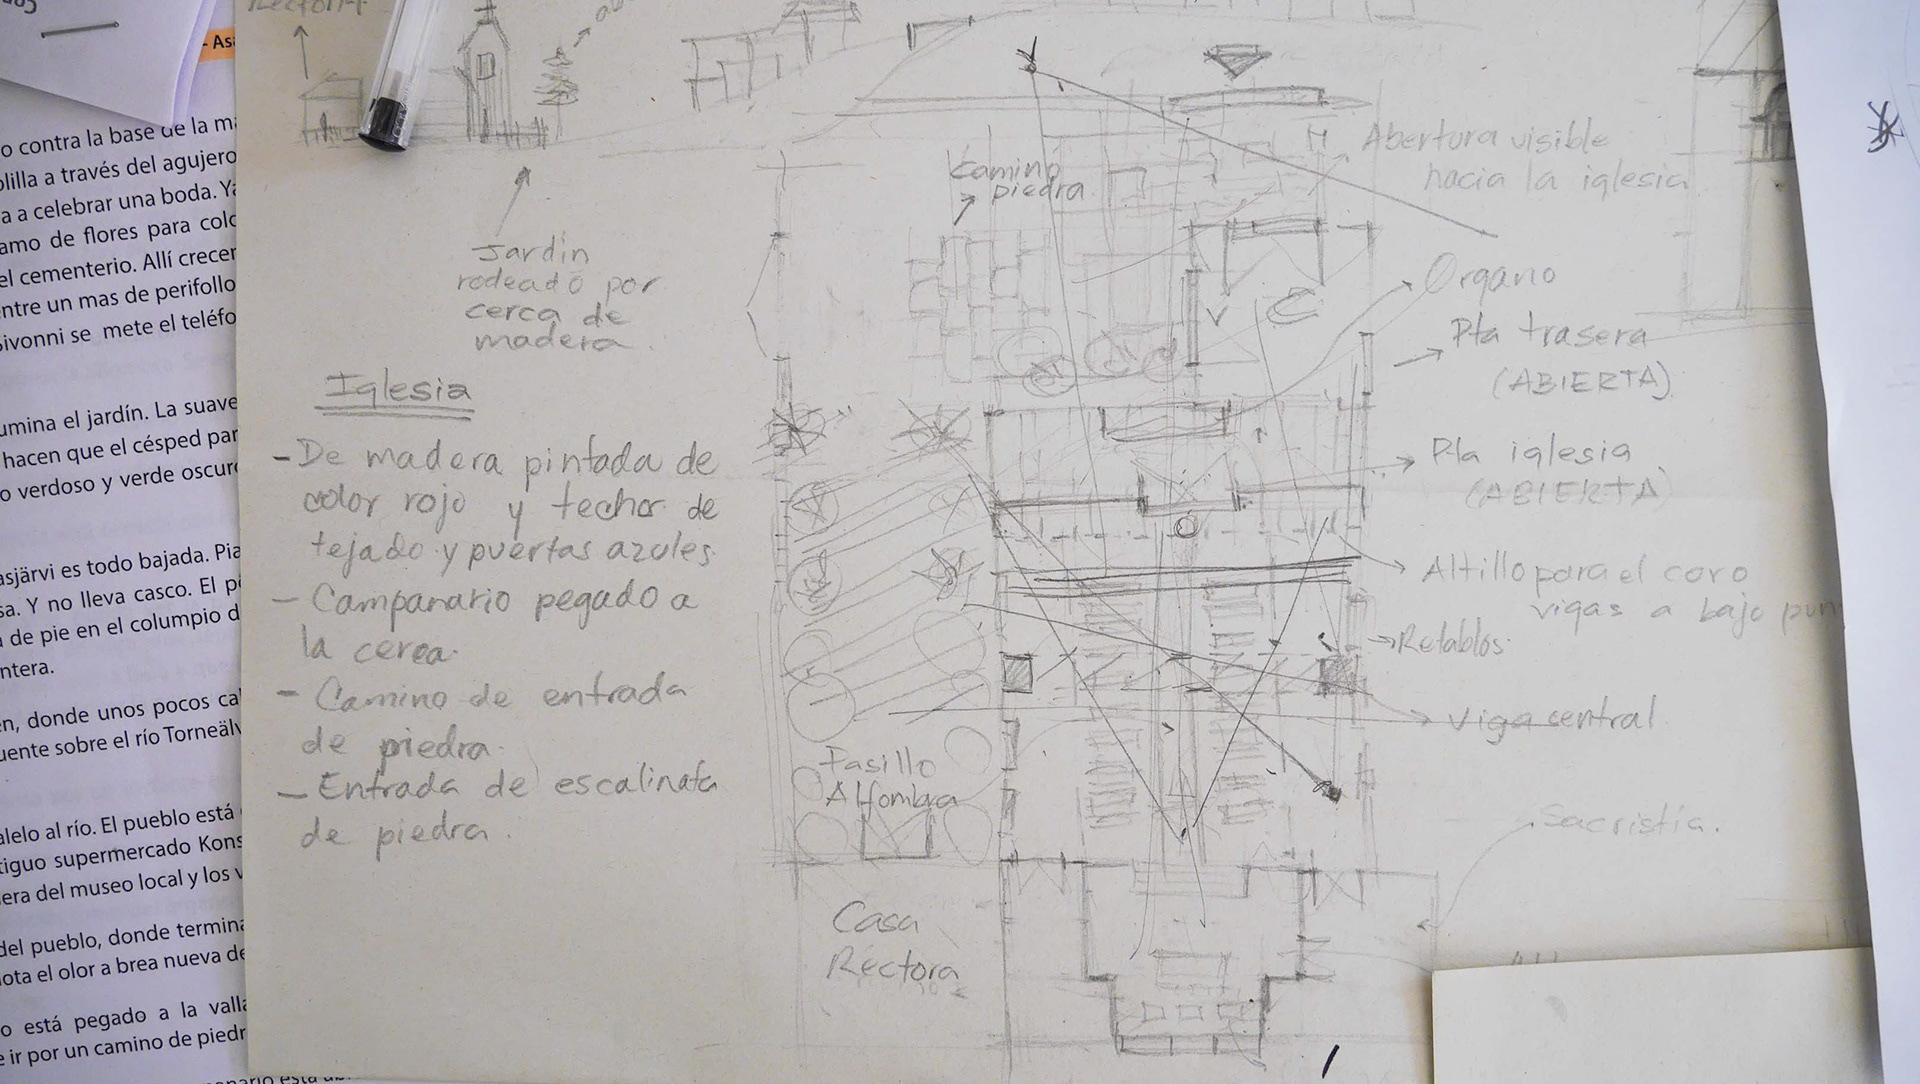 - Asa
o contra la base de la ma
olilla a través del agujero
a a celebrar una boda. Ya
amo de flores para colo
el cementerio. Allí crecen
entre un mas de perifollo
Sivonni se mete el teléfo
umina el jardín. La suave
hacen que el césped par
o verdoso y verde oscuro
asjärvi es todo bajada. Pia
sa. Y no lleva casco. El pe
a de pie en el columpio d
ntera.
en, donde unos pocos cal
uente sobre el río Torneälv
alelo al río. El pueblo está
tiguo supermercado Kons
era del museo local y los v
del pueblo, donde termina
nota el olor a brea nueva de
o está pegado a la valla
e ir por un camino de piedr
Jardín
rodeado por
cerca de
madera.
Iglesia
- De madera pintada de
color rojo y techor de
tejado y puertas azules.
- Campanario pegado a
la cerca.
- Camino de entrada
de piedra.
- Entrada de escalinata
de piedra.
Camino
piedra
Abertura visible
hacia la iglesia
Organo
Pta trasera
(ABIERTA)
Pta iglesia
(ABIERTA)
Altillo para el coro
vigas a bajo pun
Retablos.
Viga central
Sacristía.
Pasillo
Alfombra
Casa
Rectora